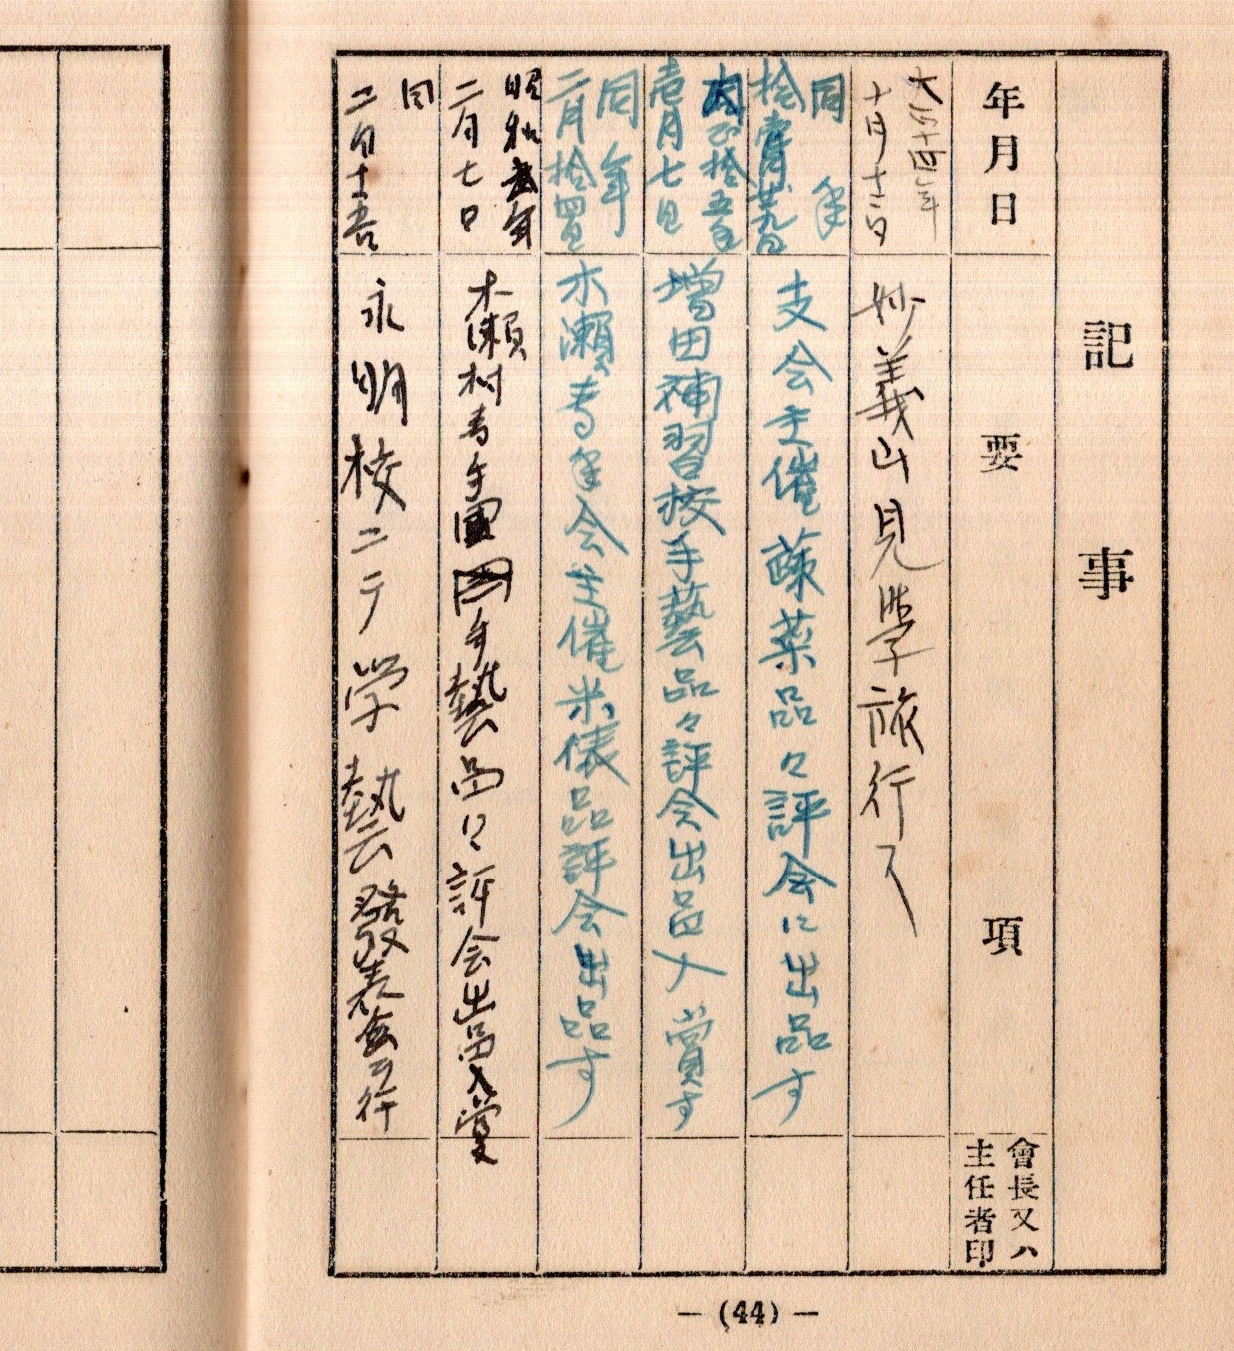 記事
年月日
要項
會長又ハ
主任者印
大正十四年
十月十二日
妙義山見学旅行ス
同年
拾壹月廿九日
支会主催蔬菜品々評会に出品す
大正拾五年
壱月七日
増田補習校手藝品々評会出品入賞す
同年
二月拾四日
木瀬青年会主催米俵品評会出品す
昭和弐年
二月七日
木瀬村青年團手藝品々評会出品入賞ス
同
二月十五日
永明校ニテ学藝發表会ヲ行
―(44)―